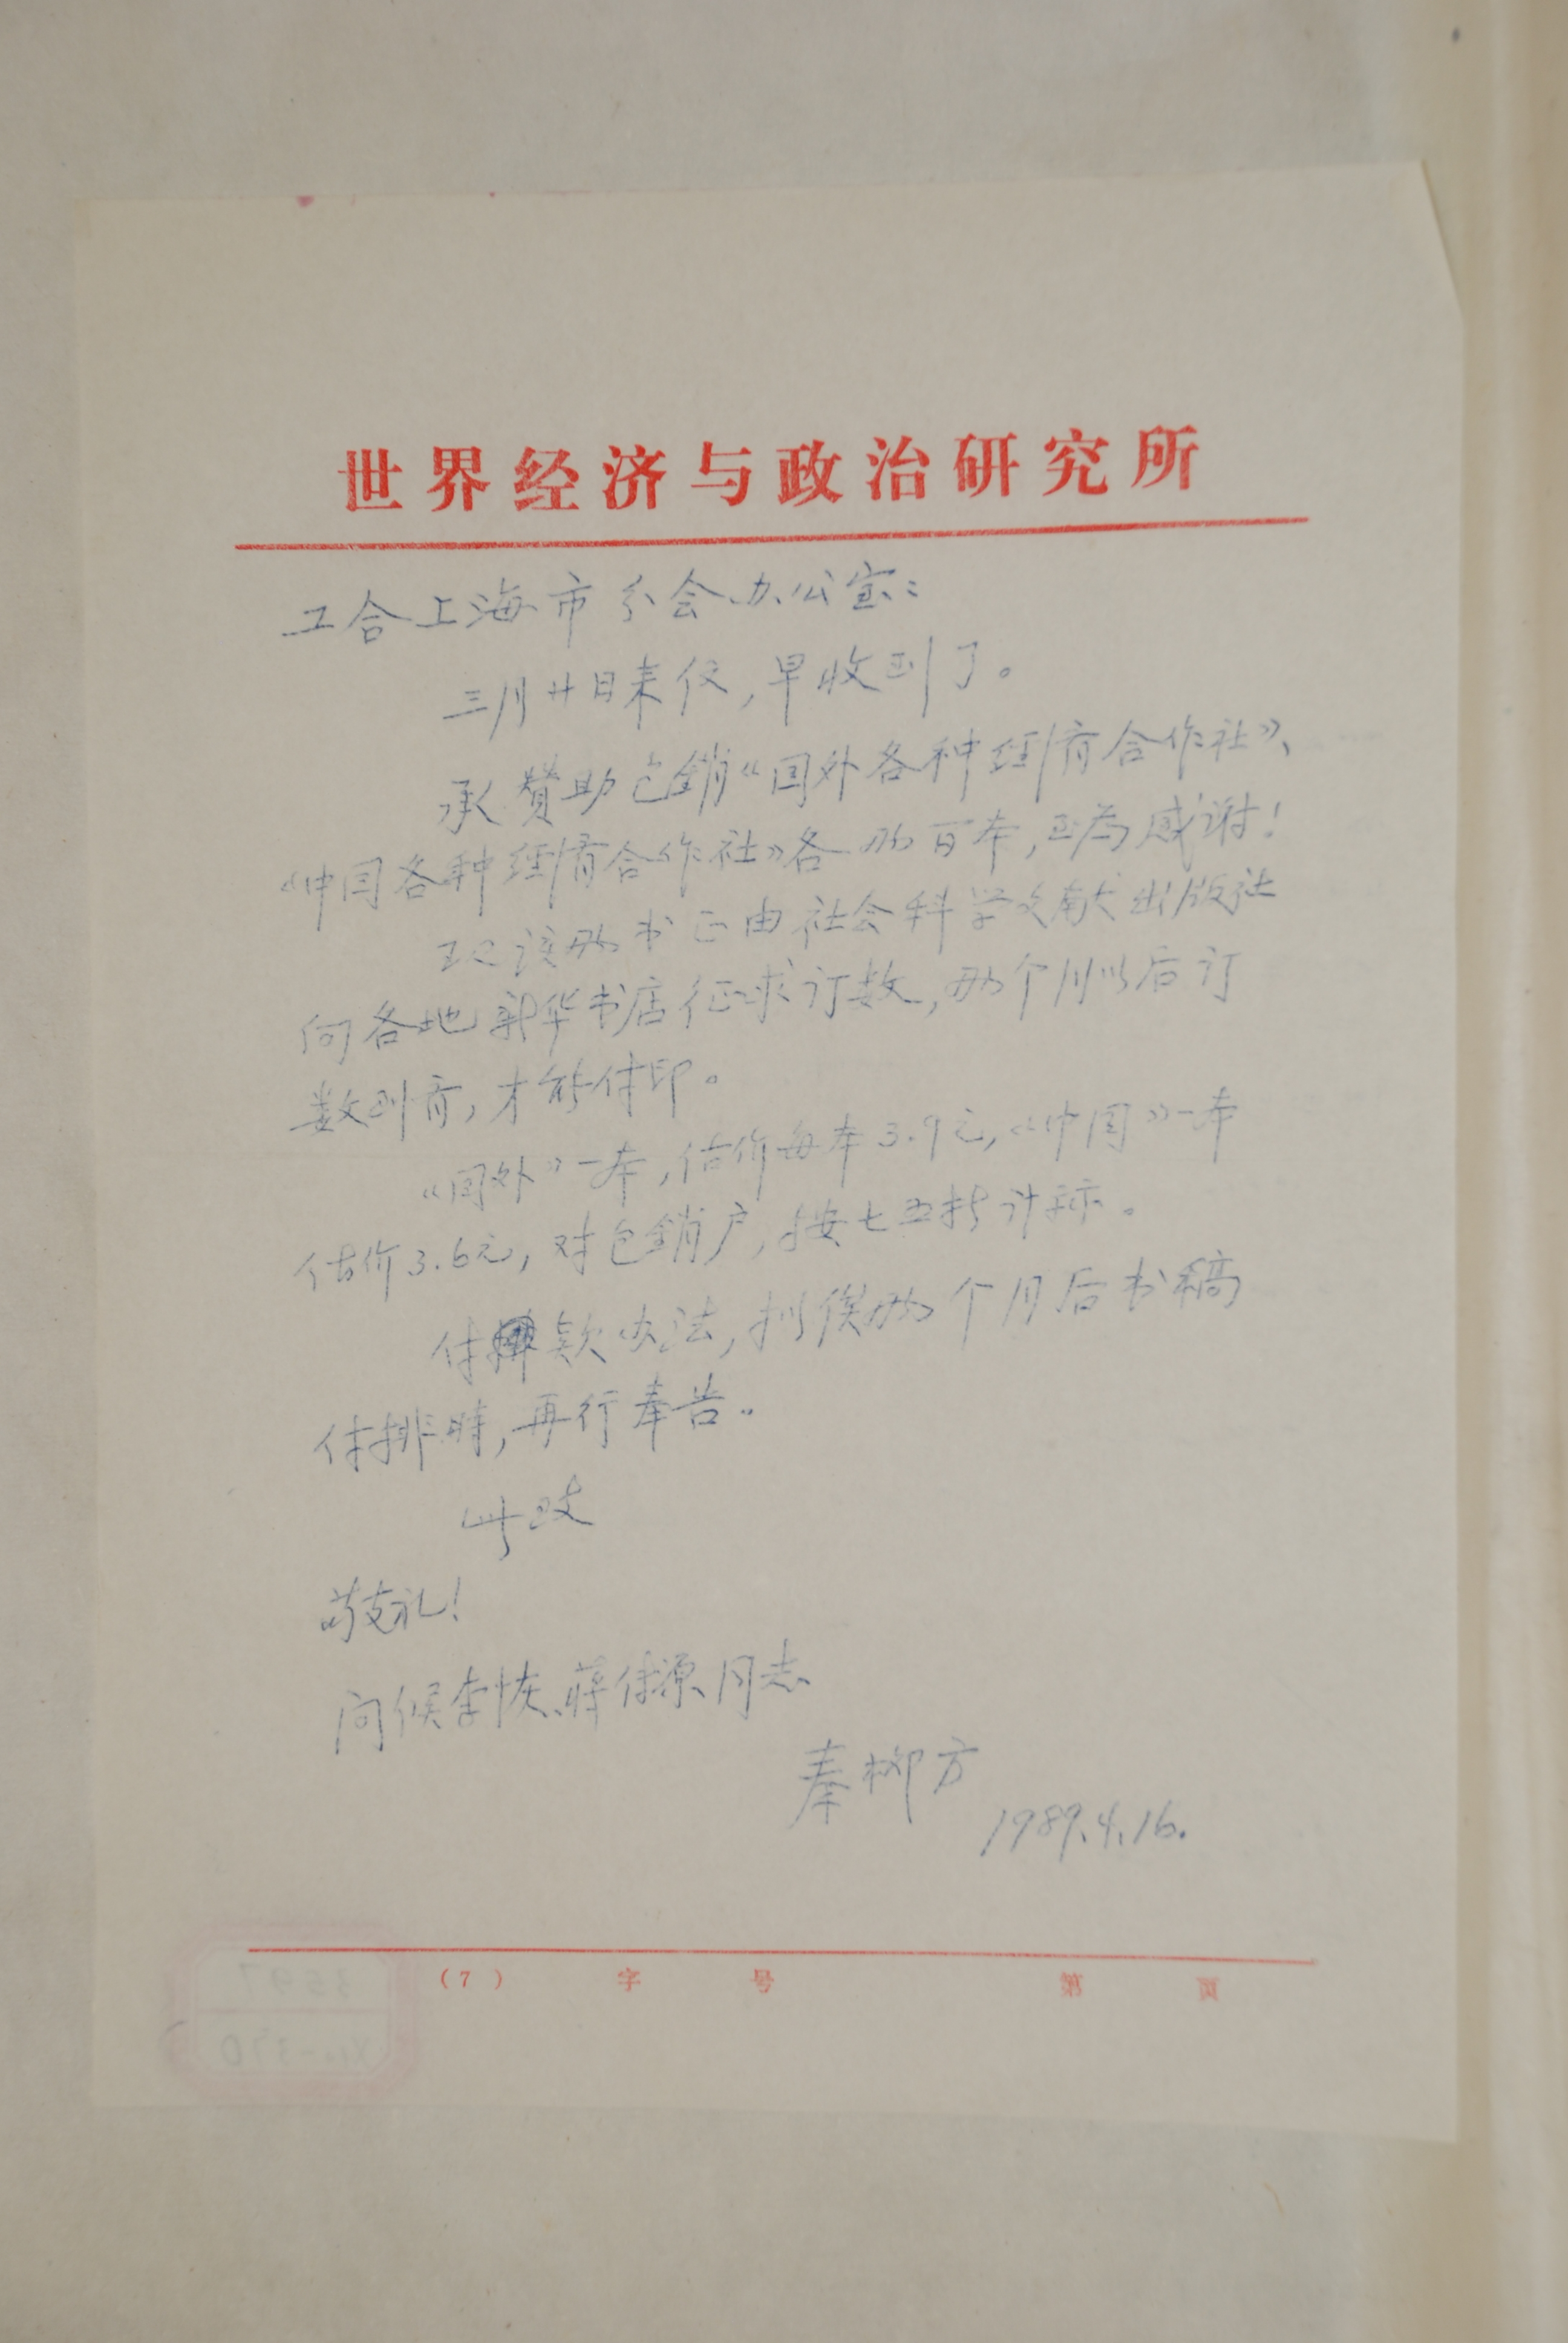 世界经济与政治研究所
工合上海市分会办公室:
三月廿日来信,早收到了。
承赞助包销《国外各种经济合作社》、
《中国各种经济合作社》各两百本,至为感谢!
现该两书正由社会科学文献出版社
向各地新华书店征求订数,两个月以后订
数到齐,才能付印。
《国外》一本,估价每本3.9元,《中国》一本
估价3.6元,对包销户,按七五折计算。
付款办法,拟俟两个月后书稿
付排时,再行奉告。
此致
敬礼!
问候李恢、蒋传源同志
秦柳方
1989.4.16.
(7) 字 号 第 页
3597